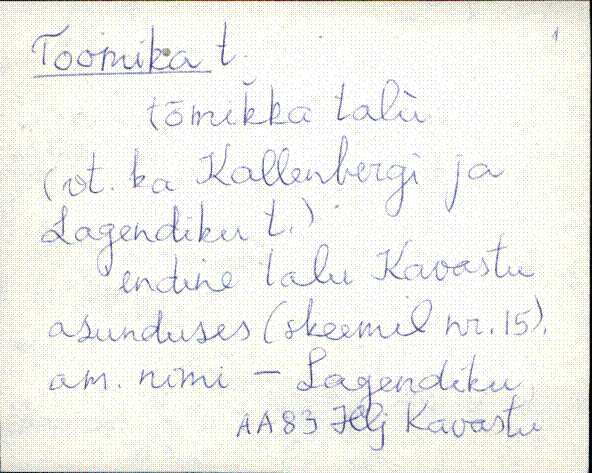 Toomika t. 1
tōmik̆ka talù
(vt. ka Kallenbergi ja
Lagendiku t.)
endine talu Kavastu
asunduses (skeemil nr. 15).
am. nimi – Lagendiku
AA83 Hlj Kavastu